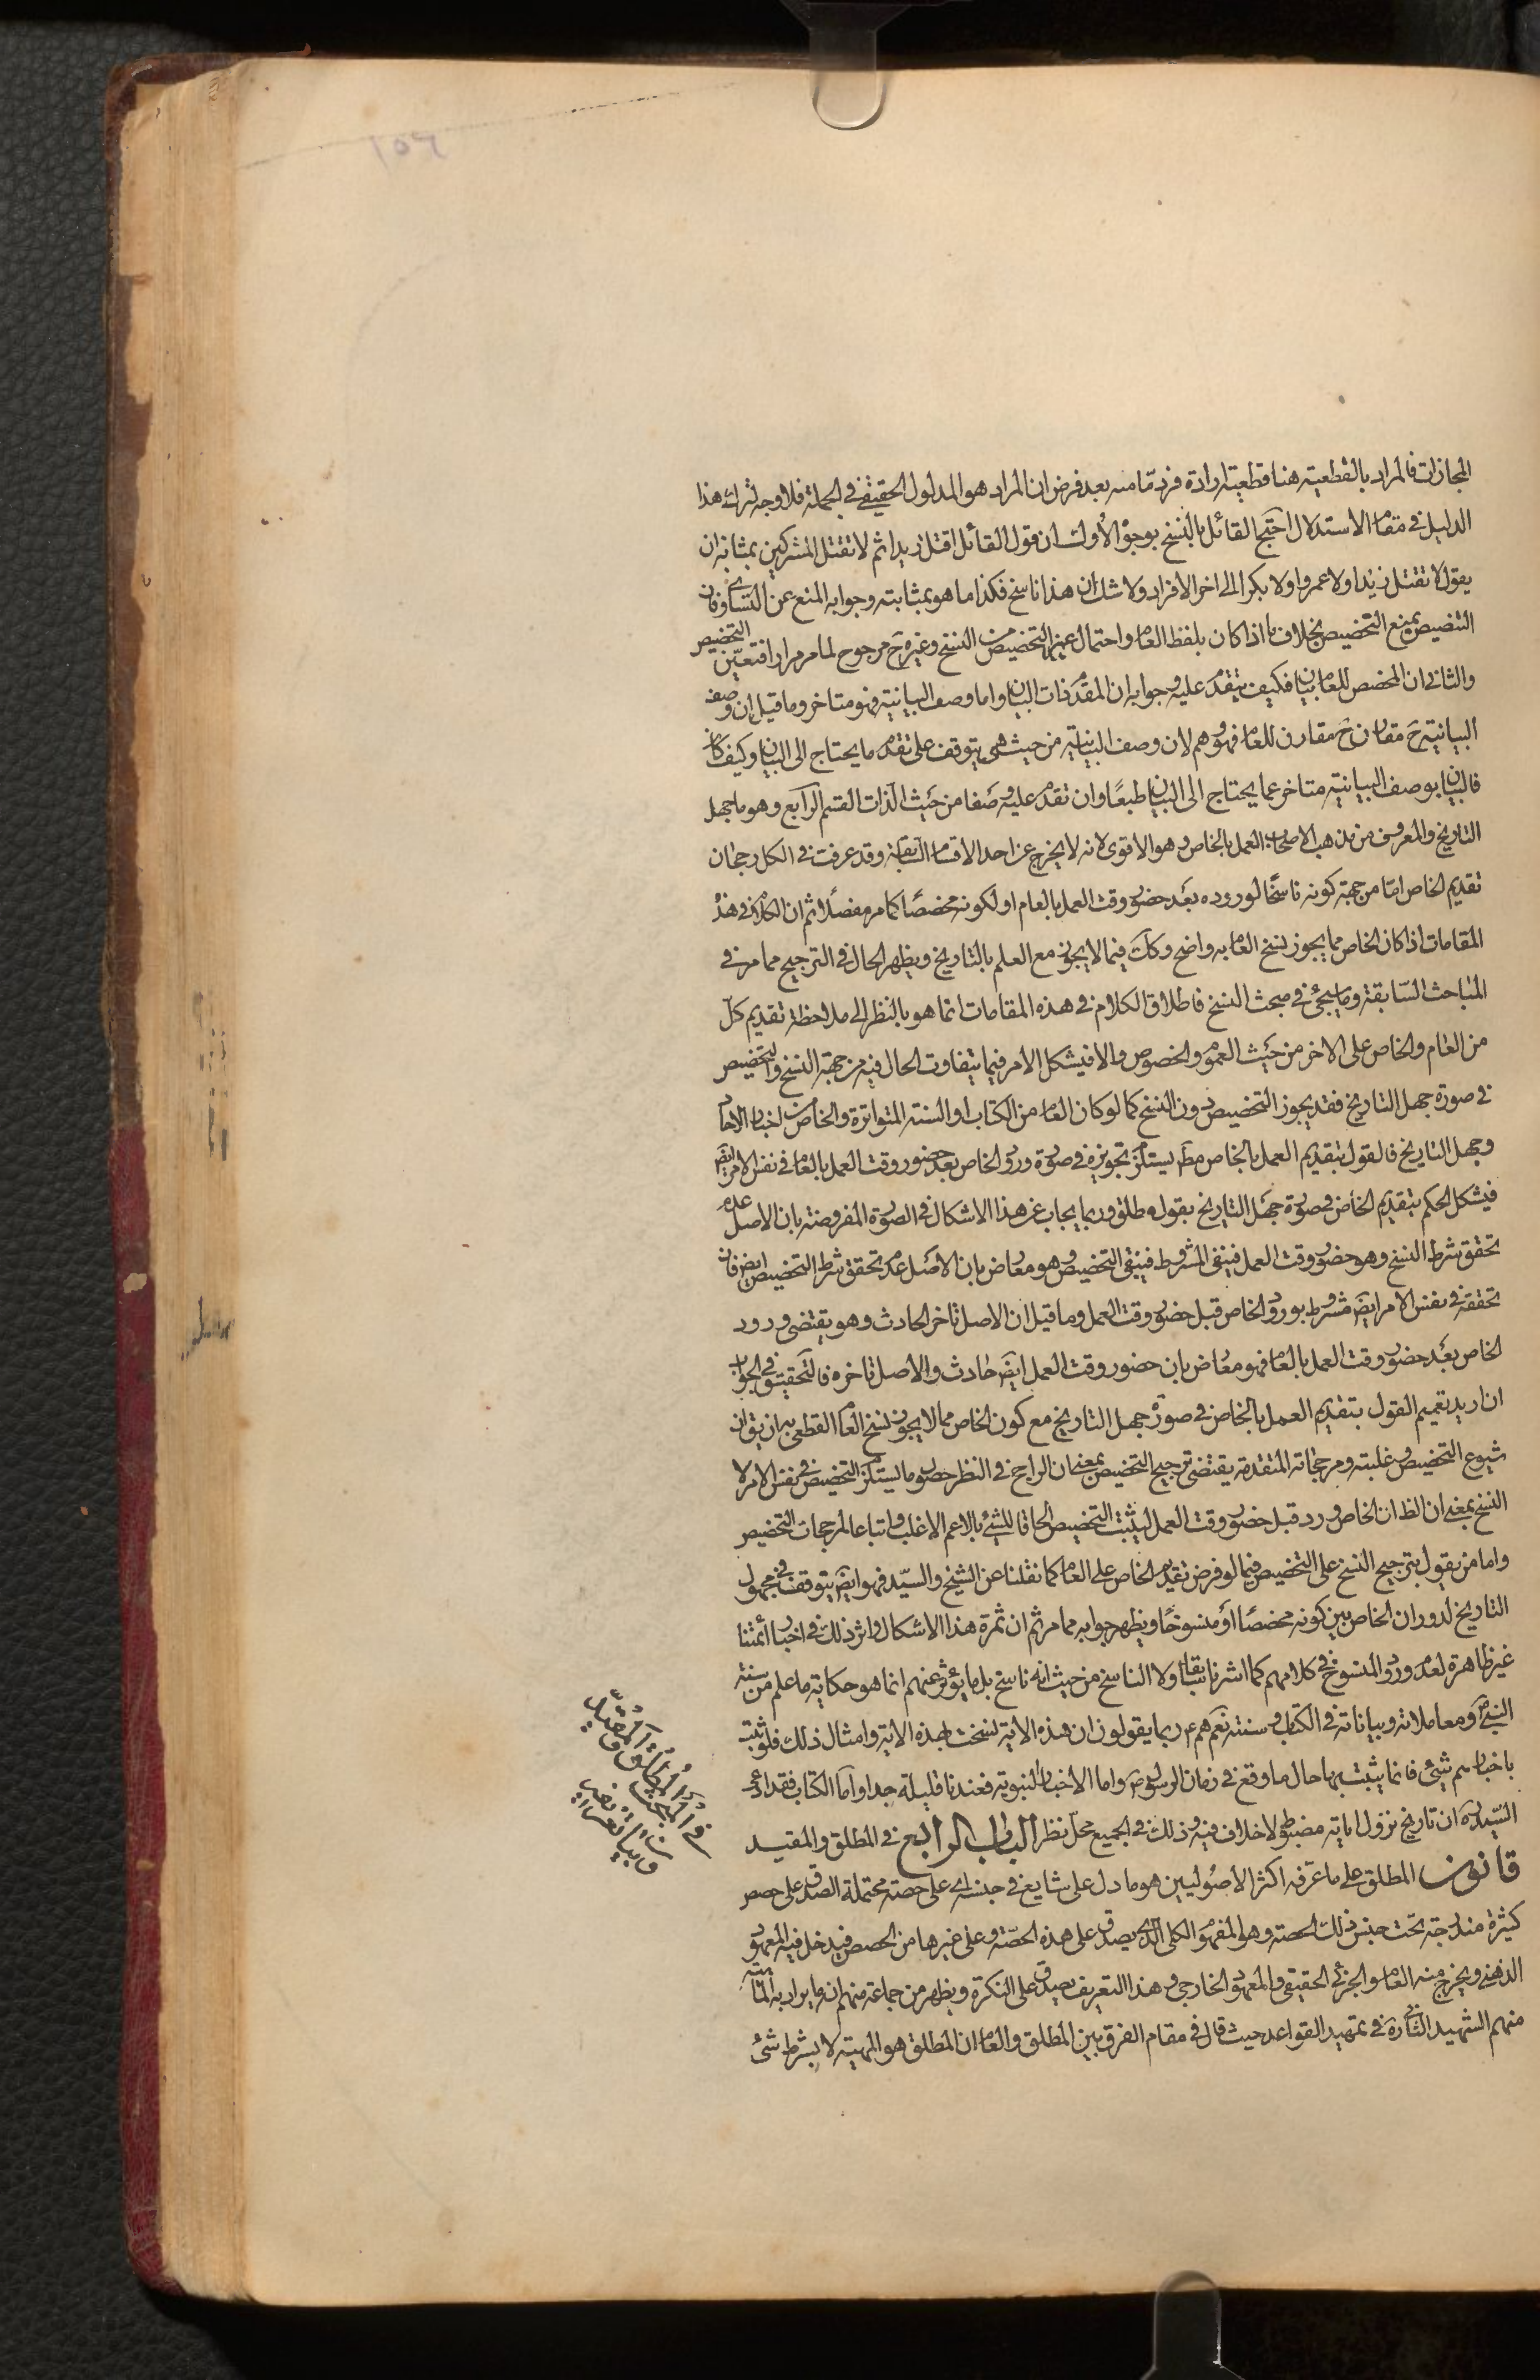 ١٥٦
المجازات فالمراد بالقطعية هنا قطعية ارادة فرد مّا منه بعد فرض ان المراد هو المدلول الحقيقي في الجملة فلا وجه لترك هذا
الدليل في مقام الاستدلال احتج القائل بالنسخ بوجوه الأول ان قول القائل اقتل زيدا ثم لا تقتل المشركين بمثابة ان
يقول لا تقتل زيدا ولا عمروا ولا بكرا الى اخر الافراد ولا شك ان هذا ناسخ فكذا ما هو بمثابته وجوابه المنع عن التساوى فان
التنصيص يمنع التخصيص بخلاف ما اذا كان بلفظ العام واحتمال غير التخصيص من النسخ وغيره ح مرجوح لما مر مرارا فتعيّن التخصيص
والثانى ان المخصص للعام بيان فكيف يتقدم عليه وجوابه ان المقدم ذات البيان واما وصف البيانية فهو متاخر وما قيل ان وصف
البيانية ح مقارن ح مقارن للعام فهو وهم لان وصف البيانية من حيث هى يتوقف على تقدم ما يحتاج الى البيان وكيف كان
فالبيان بوصف البيانية متاخر عما يحتاج الى البيان طبعًا وان تقدم عليه وضعا من حيث الذات القسم الرابع وهو ما جهل
التاريخ والمعروف من مذهب الاصحاب العمل بالخاص وهو الاقوى لانه لا يخرج عن احد الاقسام السابقة وقد عرفت في الكل رجحان
تقديم الخاص امّا من جهة كونه ناسخًا لوروده بعد حضور وقت العمل بالعام او لكونه مخصصًا كما مر مفصلًا ثم ان الكلام في هذه
المقامات اذا كان الخاص مما يجوز نسخ العام به واضح وكك فيما لا يجوز مع العلم بالتاريخ ويظهر الحال في الترجيح مما مر في
المباحث السّابقة وما سيجئ في مبحث النسخ فاطلاق الكلام في هذه المقامات انما هو بالنظر الى ملاحظة تقديم كلّ
من العام والخاص على الاخر من حيث العموم والخصوص والا فيشكل الامر فيما يتفاوت الحال فيه من جهة النسخ والتخصيص
في صورة جهل التاريخ فقد يجوز التخصيص دون النسخ كما لو كان العام من الكتاب او السنة المتواترة والخاص من اخبار الاحاد
وجهل التاريخ فالقول بتقديم العمل بالخاص مط يستلزم تجويزه في صورة ورود الخاص بعد حضور وقت العمل بالعام في نفس الامر ايض
فيشكل الحكم بتقديم الخاص في صورة جهل التاريخ بقول مطلق وربما يجاب عن هذا الاشكال في الصورة المفروضة بان الاصل عدم
تحقق شرط النسخ وهو حضور وقت العمل فينفى المشروط فيبقى التخصيص وهو معارض بان الاصل عدم تحقق شرط التخصيص ايض فان
تحققه في نفس الامر ايض مشروط بورود الخاص قبل حضور وقت العمل وما قيل ان الاصل تاخر الحادث وهو يقتضى ورود
الخاص بعد حضور وقت العمل بالعام فهو معارض بان حضور وقت العمل ايض حادث والاصل تاخره فالتحقيق في الجواب
ان اريد تعميم القول بتقديم العمل بالخاص في صورة جهل التاريخ مع كون الخاص مما لا يجوز نسخ العام القطعى به ان يق ان
شيوع التخصيص وغلبته ومرجحاته المتقدمة يقتضى ترجيح التخصيص بمعنى ان الراجح في النظر حصول ما يستلزم التخصيص في نفس الامر لا
النسخ بمعنى ان الظ ان الخاص ورد قبل حضور وقت العمل ليثبت التخصيص الحاقا للشئ بالاعم الاغلب واتباعا لمرجحات التخصيص
واما من يقول بترجيح النسخ على التخصيص فيما لو فرض تقديم الخاص على العام كما نقلنا عن الشيخ والسيّد فهو ايض يتوقف في مجهول
التاريخ لدوران الخاص بين كونه مخصصًا او منسوخًا ويظهر جوابه مما مر ثم ان ثمرة هذا الاشكال واثر ذلك في اخبار أئمتنا
غير ظاهرة لعدم ورود المنسوخ في كلامهم كما اشرنا سابقا ولا الناسخ من حيث انه ناسخ بل ما يؤثر عنهم انما هو حكاية ما علم من سنة
النبيّ ومعاملاته وبياناته في الكتاب وسنته نعم هم ع ربما يقولون ان هذه الاية نسخت بهذه الاية وامثال ذلك فلو ثبت
باخبارهم شئ فانما يثبت بها حال ما وقع في زمان الرسول ص واما الاخبار النبوية فعندنا قليلة جدا واما الكتاب فقد ادعى
السّيد ره ان تاريخ نزول اياته مضبوط لا خلاف فيه وذلك في الجميع محلّ نظر الباب الرابع في المطلق والمقيد
قانون المطلق على ما عرّفه اكثر الاصوليين هو ما دل على شايع في جنسه اى على حصته محتملة الصدق على حصص
كثيرة مندرجة تحت جنس ذلك الحصة وهو المفهوم الكلى الّذى يصدق على هذه الحصّة وعلى غيرها من الحصص فيدخل فيه المعهود
الذهنى ويخرج منه العام والجزئى الحقيقى والمعهود الخارجى وهذا التعريف يصدق على النكرة ويظهر من جماعة منهم انه ما يراد به المهية
منهم الشهيد الثانى ره في تمهيد القواعد حيث قال في مقام الفرق بين المطلق والعام ان المطلق هو المهية لا بشرط شئ